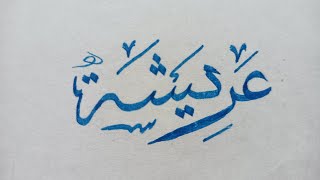 عَرِيشَةٌ